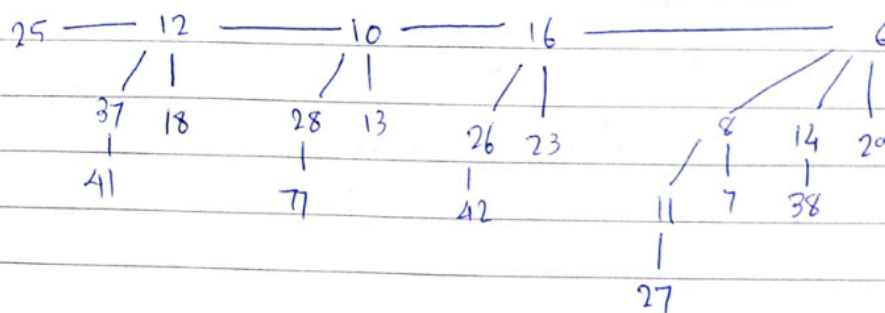 25 12 10 16 6
37 18 28 13 26 23 8 14 29
41 77 42 11 7 38
27